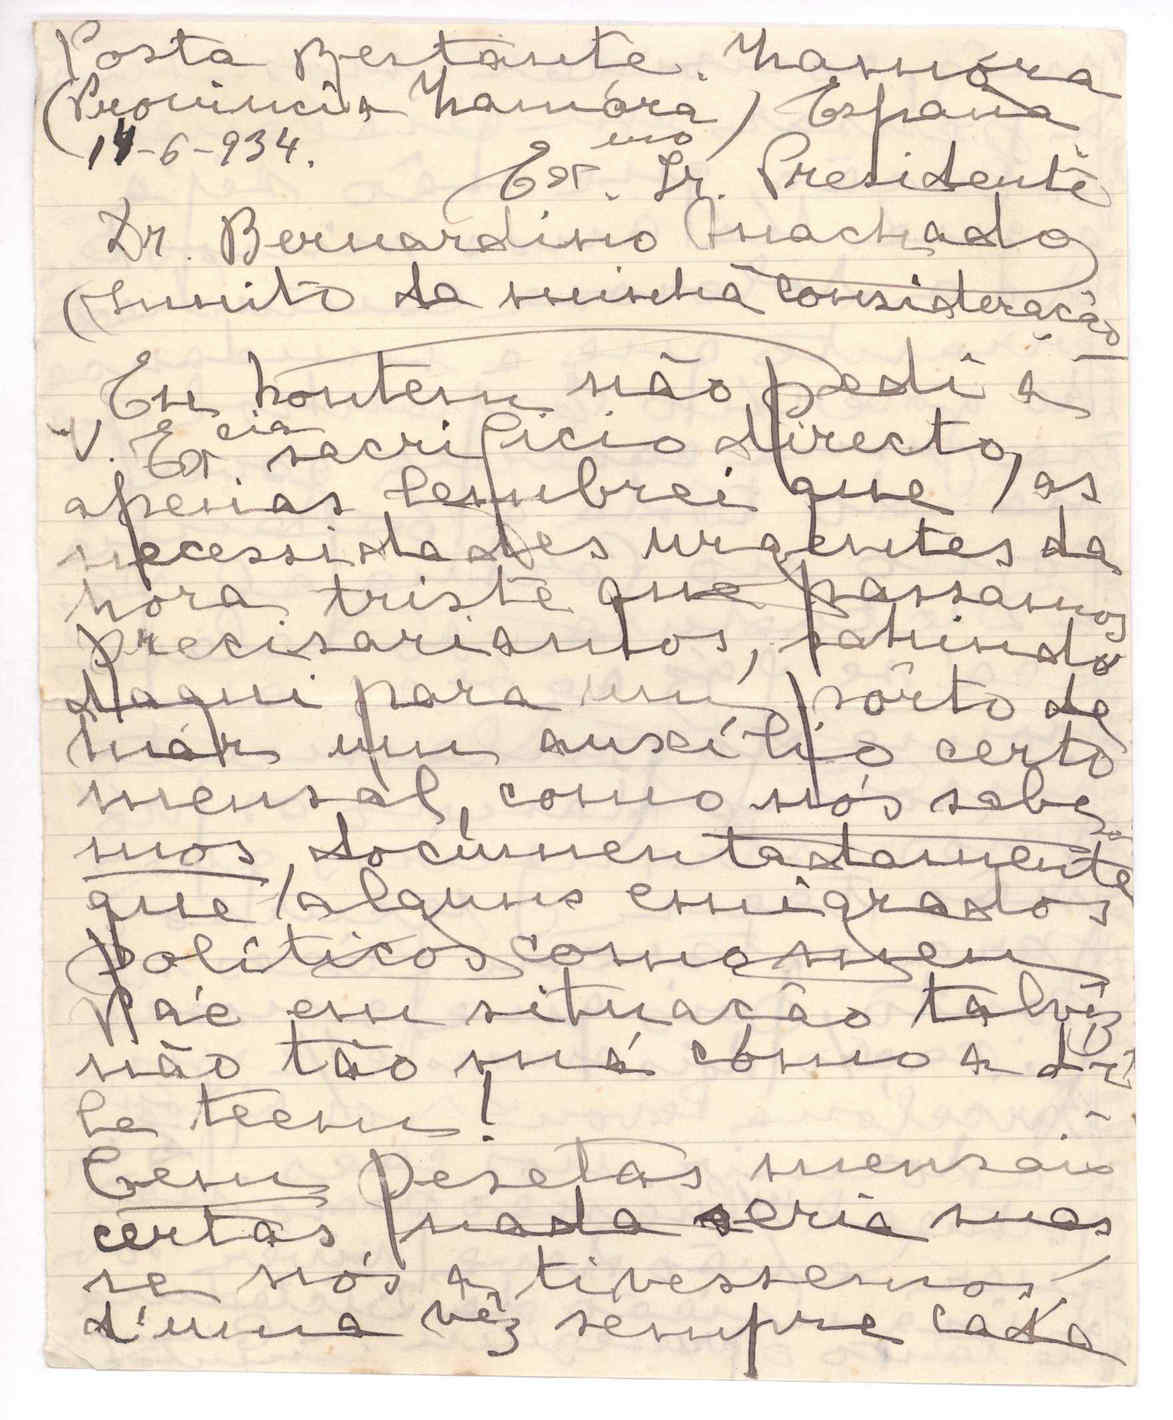 Posta Restante. Zamóra
(Provincia Zamóra) España
14-6-934.
Exmo. Sr. Presidente
Dr. Bernardino Machado
(muito da minha consideração
Eu hontem não pedi a
V. Excia sacrificio directo,
apenas lembrei que, as
necessidades urgentes da
hora triste que passamos
precisariamos, sahindo
daqui para um pôrto de
már um auxílio certo
mensal, como nós sabe
mos, documentadamente
que alguns emigrados
políticos como meu
Páe em situação talvêz
não tão má como a dê
le teem!
Cem pesetas mensais
certas, nada seria mas
se nós a tivessemos
d'uma vêz sempre cada